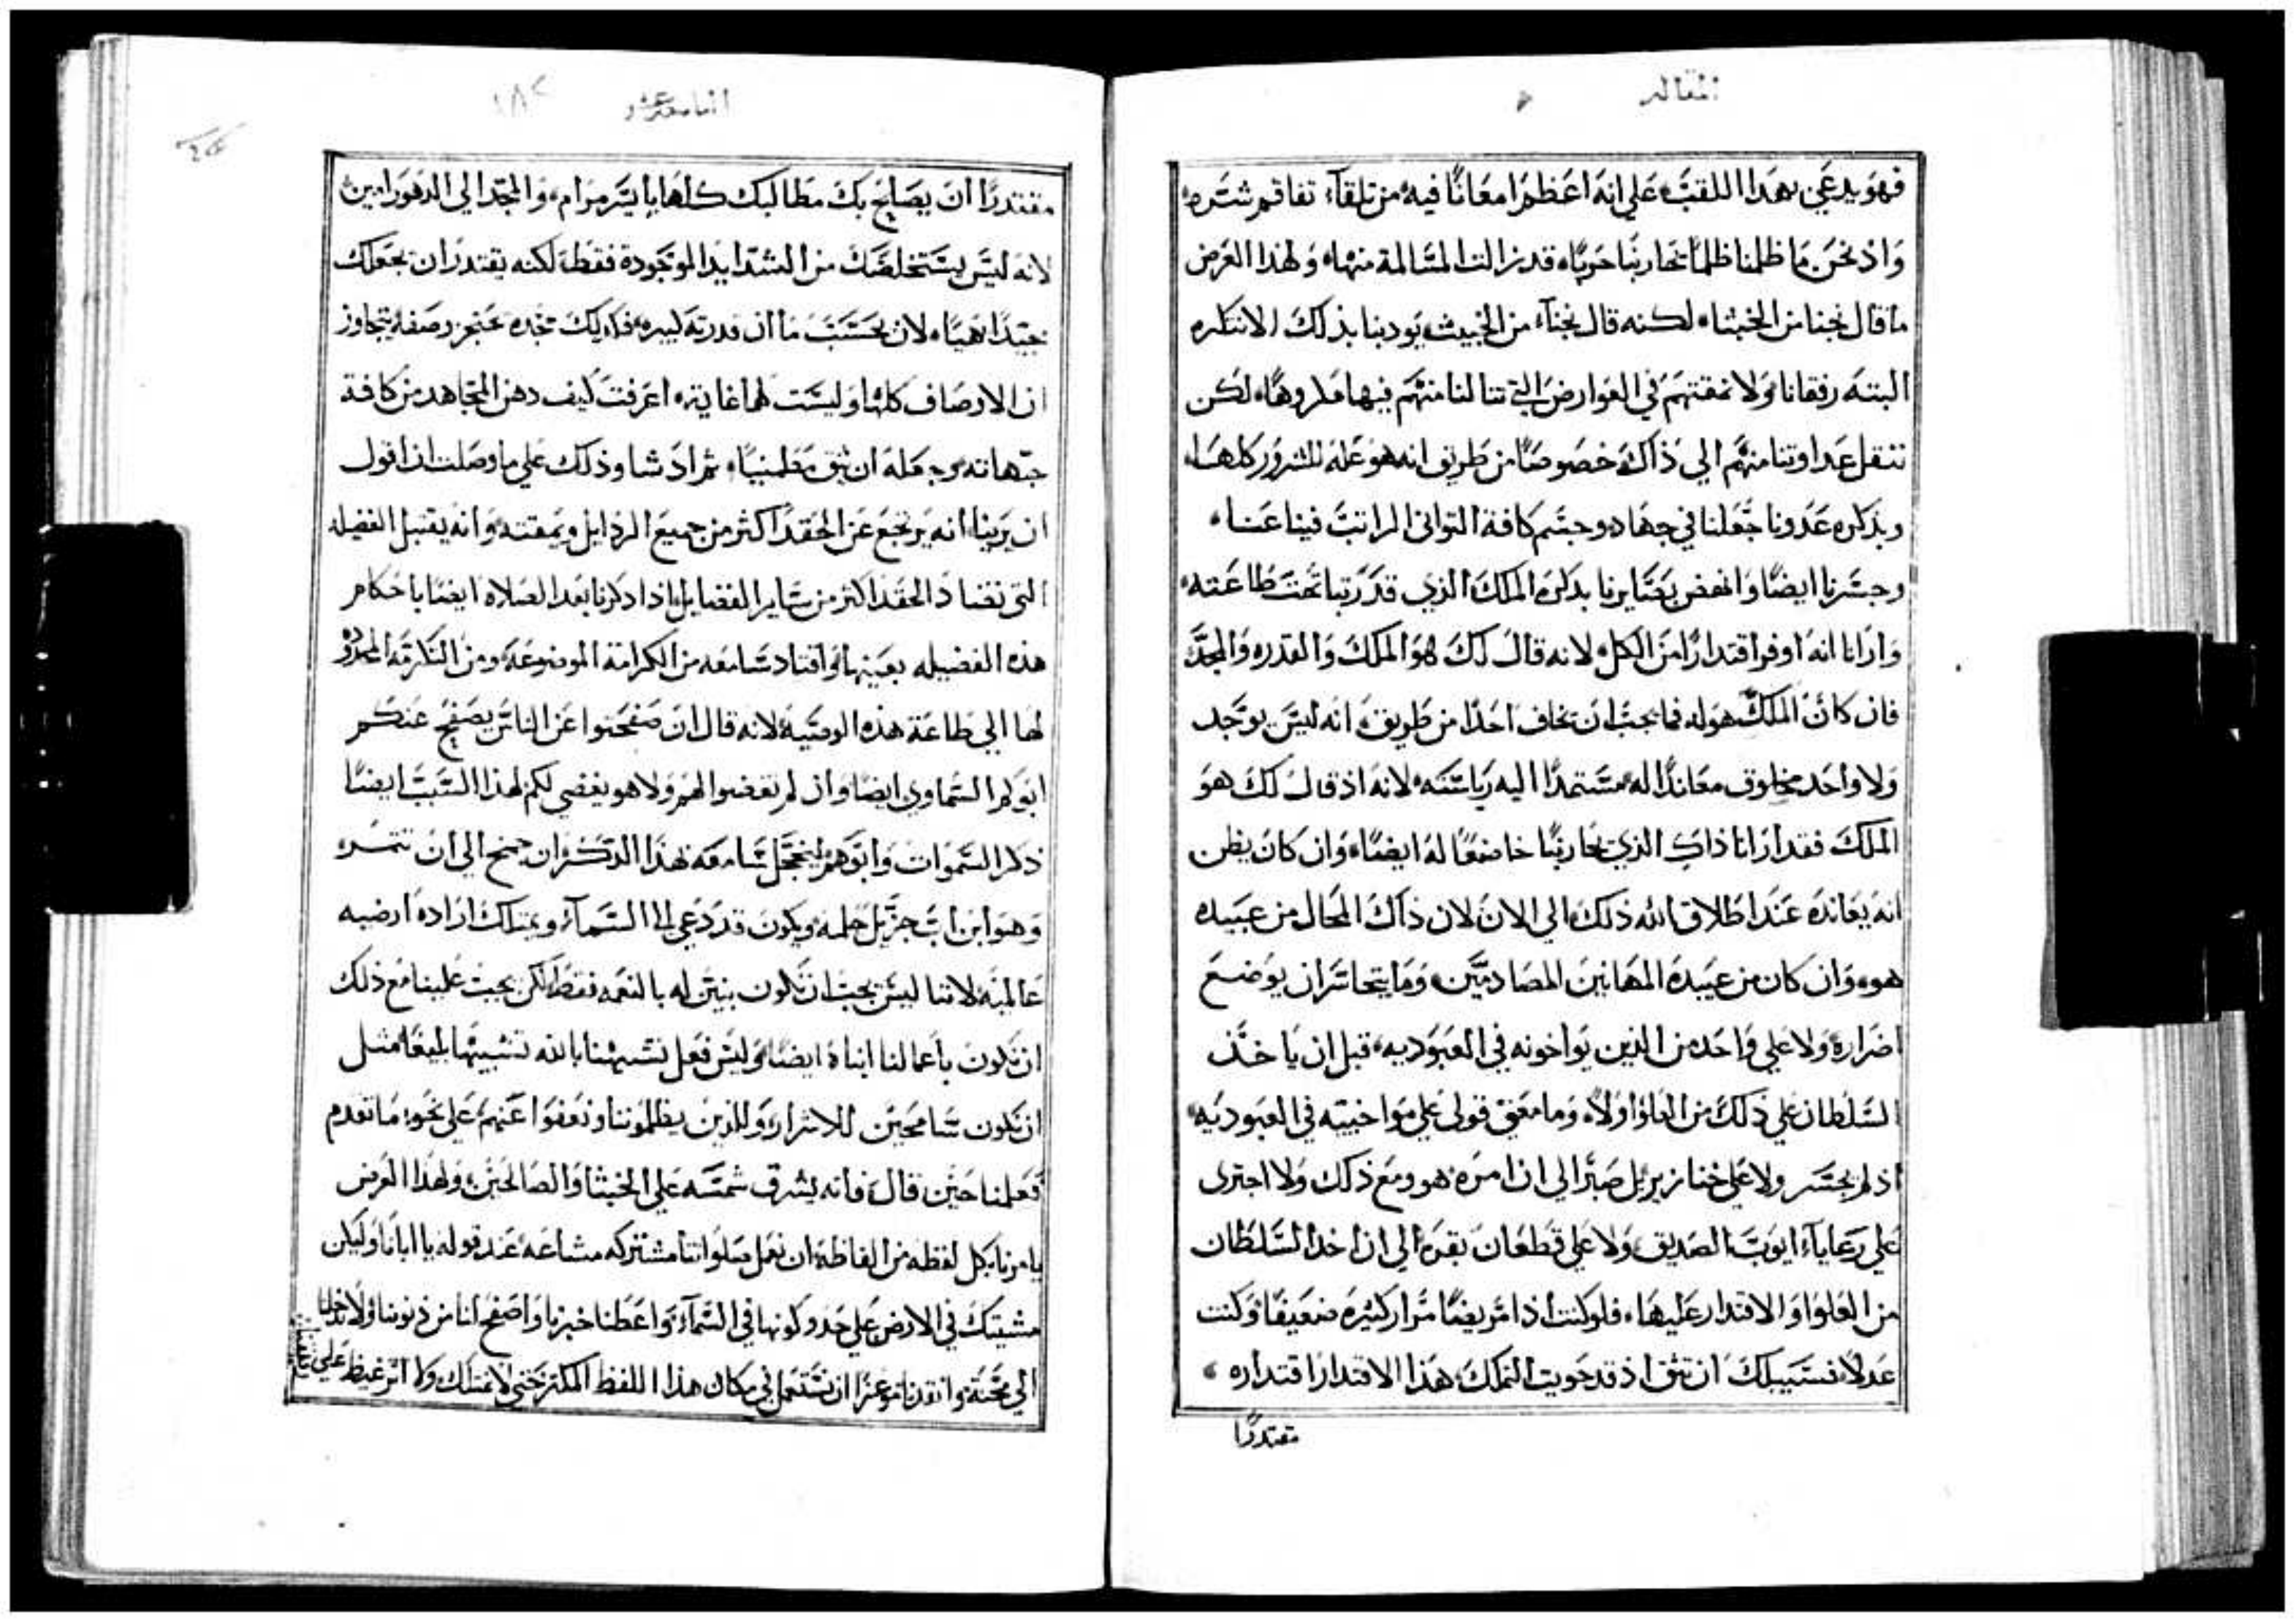 المقاله
فهو يدعي بهذا اللقب علي انه اعظمرا معانا فيه من تلقآء تفاقم شره
واذ نحن ما ظلمنا ظلما يحاربنا حربا قد زالت المسالمة منها ولهذا الغرض
ما قال نجنا من الخبثاء لكنه قال نجنآء من الخبيث يودبنا بذلك الا نتكره
البتة رفقانا ولا نمقتهم في العوارض التي تنالنا منهم فيها مكروها لكن
ننقل عداوتنا منهم الي ذاك خصوصا من طريق انه هو عله للشرور كلها
وبذكره عدونا جعلنا في جهاد وحسم كافة التواني الراتب فينا عنا
وجسرنا ايضا وانهض بصايرنا بذكره الملك الذي قد رتبنا تحت طاعته
وارانا انه اوفر اقتدارا من الكل لانه قال لك هو الملك والقدره والمجد
فان كان الملك هو له فما يجب ان نخاف احدا من طريق انه ليس يوجد
ولا واحد مخلوق معاندا له مستمدا اليه رياسته لانه اذ قال لك هو
الملك فقد ارانا ذاك الذي يحاربنا خاضعا له ايضا وان كان يظن
انه يعانده عند اطلاق الله ذلك الي الان لان ذاك المحال من عبيده
هو وان كان من عبيده المهانين المصادمين وما يتحاسر ان يوضع
اضراره ولا علي واحد من الذين يواخونه في العبوديه قبل ان ياخذ
السلطان علي ذلك من العلوا اولا وما معني قولي علي مواخيته في العبوديه
اذ لم يجسر ولا علي خنازير بل صبرا الي ان امره هو ومع ذلك ولا اجترى
علي رعاياء ايوب الصديق ولا علي قطعان بقره الي ان اخذ السلطان
من العلوا والاقتدار عليها فلو كنت اذا مريضا مرار كثيره ضعيفا وكنت
عدلا فسبيلك ان تثق اذ قد حويت التملك هذا الاقتدار اقتداره
مقتدرا
الثامنه عشر
١٨٢
مقتدرا ان يصلح بك مطالبك كلها بايسر مرام والمجد الي الدهور امين
لانه ليس يستخلصك من الشدايد الموجوده فقط لكنه يقتدر ان يجعلك
جيدا بهيا لان بحسب ما ان قدرته كبيره فكذلك تجده عنجز وصفه يتجاوز
ان الاوصاف كلها وليست لها غاية اعرفت كيف دهن المجاهد من كافة
جهاته وجعله ان يثق مطمنيا ثم اد شا وذلك علي ما وصلت ان اقول
ان يرينا انه يرتجع عن الحقد اكثر من جميع الرذايل ويمقته وانه يقتبل الفضيله
التي تضاد الحقد اكثر من ساير الفضايل اذ اذكرنا بعد الصلاه ايضا باحكام
هذه الفضيله بعينها واقتاد سامعه من الكرامة الموضوعه ومن التكرمه المحدوده
لها الي طاعة هذه الوصيه لانه قال ان صفحتوا عن الناس يصفح عنكم
ابوكم السماوي ايضا وان لم تغضوا لهم ولا هو يغضي لكم لهذا السبب ايضا
ذكر السموات وابوهم ليخجل سامعه بهذا التذكر ان جنح الي ان تنمره
وهو ابن اب جزيل حلمه ويكون قد دعي الي السمآء ويمتلك اراده ارضيه
عالميه لاننا ليس يجب ان نكون بنين له بالنعمه فقط لكن يجب علينا مع ذلك
ان نكون باعمالنا ابناه ايضا وليس فعل تشبهنا بالله تشبيها بليغا مثل
ان نكون سامحين للاشرار وللذين يظلموننا ونعفوا عنهم علي نحو ما تقدم
فعلمنا حين قال فانه يشرق شمسه علي الخبثا والصالحين ولهذا الغرض
يامرنا بكل لفظه من الفاظه ان نعمل صلواتنا مشتركه مشاعه عند قوله يا ابانا وليكن
مشيتك في الارض علي حد وكونها في السمآء واعطنا خبزنا واصفح لنا من ذنوبنا ولا تدخلنا
الي محنه وانقذنا موعزا ان نستعمل في مكان هذا اللفظ المكثر حتي لا نمتلك ولا اثر غيظ علي